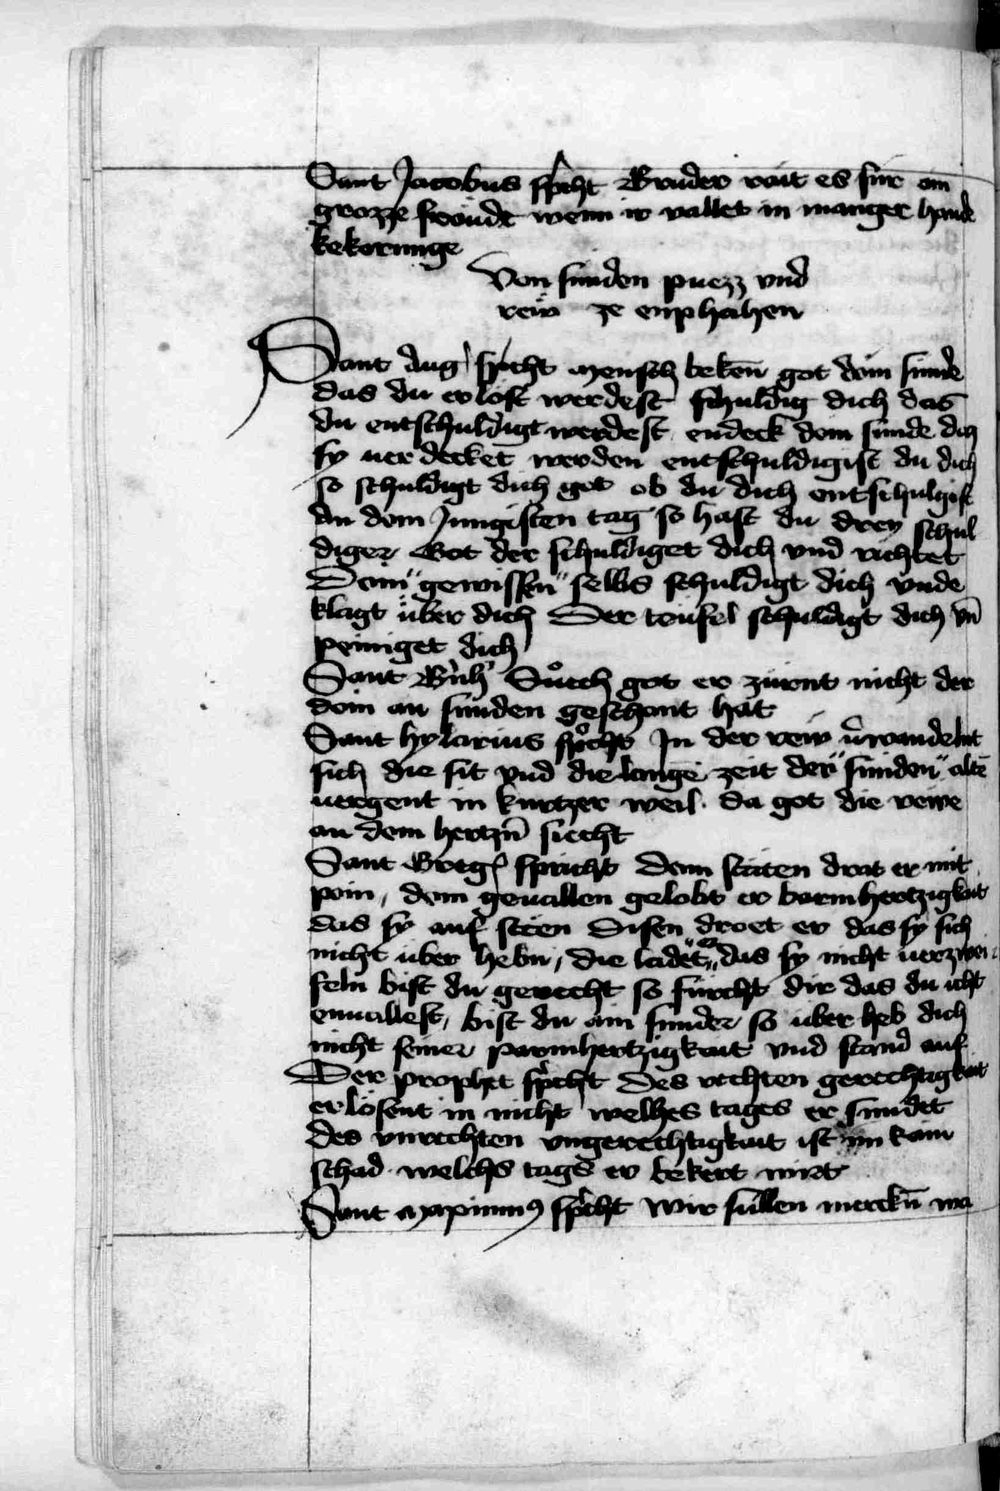 Sant Jacobus spͥcht Bruder rait es für ain
grozze freüde wenn ir vallet in manger hande
kekorunge
Von sunden puezz vnd
rew ze enphahen
Sant Aug spͥcht mensch beken̄ got dein sunde
das du erlöst werdest schuldig dich das
du entschuldigt werdest endeck dein sunde daz
sy uer decket werden entschuldigist du dich
so schuldigt dich got ob du dich entschulgist
An dem Jungisten tag so hast du drey schul
diger Got der schuldiget dich vnd richtet
Dein gewissen selbs schuldigt dich vnde
klagt über dich Der teufel schuldigt dich vn̄
peiniget dich
Sant Bernh Suͦech got er zürnt nicht der
dein an sunden geschont hat
Sant hylarius spͥcht In der rew v̄wandelnt
sich die sit vnd die lange zeit der sunden alte
uergent in kurtzer weil da got die rewe
an dem hertzn̄ siecht
Sant Greg spricht Dem stäten drat er mit
pein, dem geuallen gelobt er barmhertzigkait
das sy auf steen Disen droet er das sy sich
nicht über hebn, die ladet er das sy nicht uerzwei
feln bist du gerecht so fürcht dir das du icht
enuallest, bist du ain sunder so über heb dich
nicht seiner parmhertzigkait vnd stand auf
Der prophet spͥcht Des rechten gerechtigkait
erlösent in nicht welhes tages er sundet
des vnrechten vngerechtigkait ist im kain
schad welchs tags er bekert wirt
Sant Maximus spͥcht Wir süllen merckn̄ wa